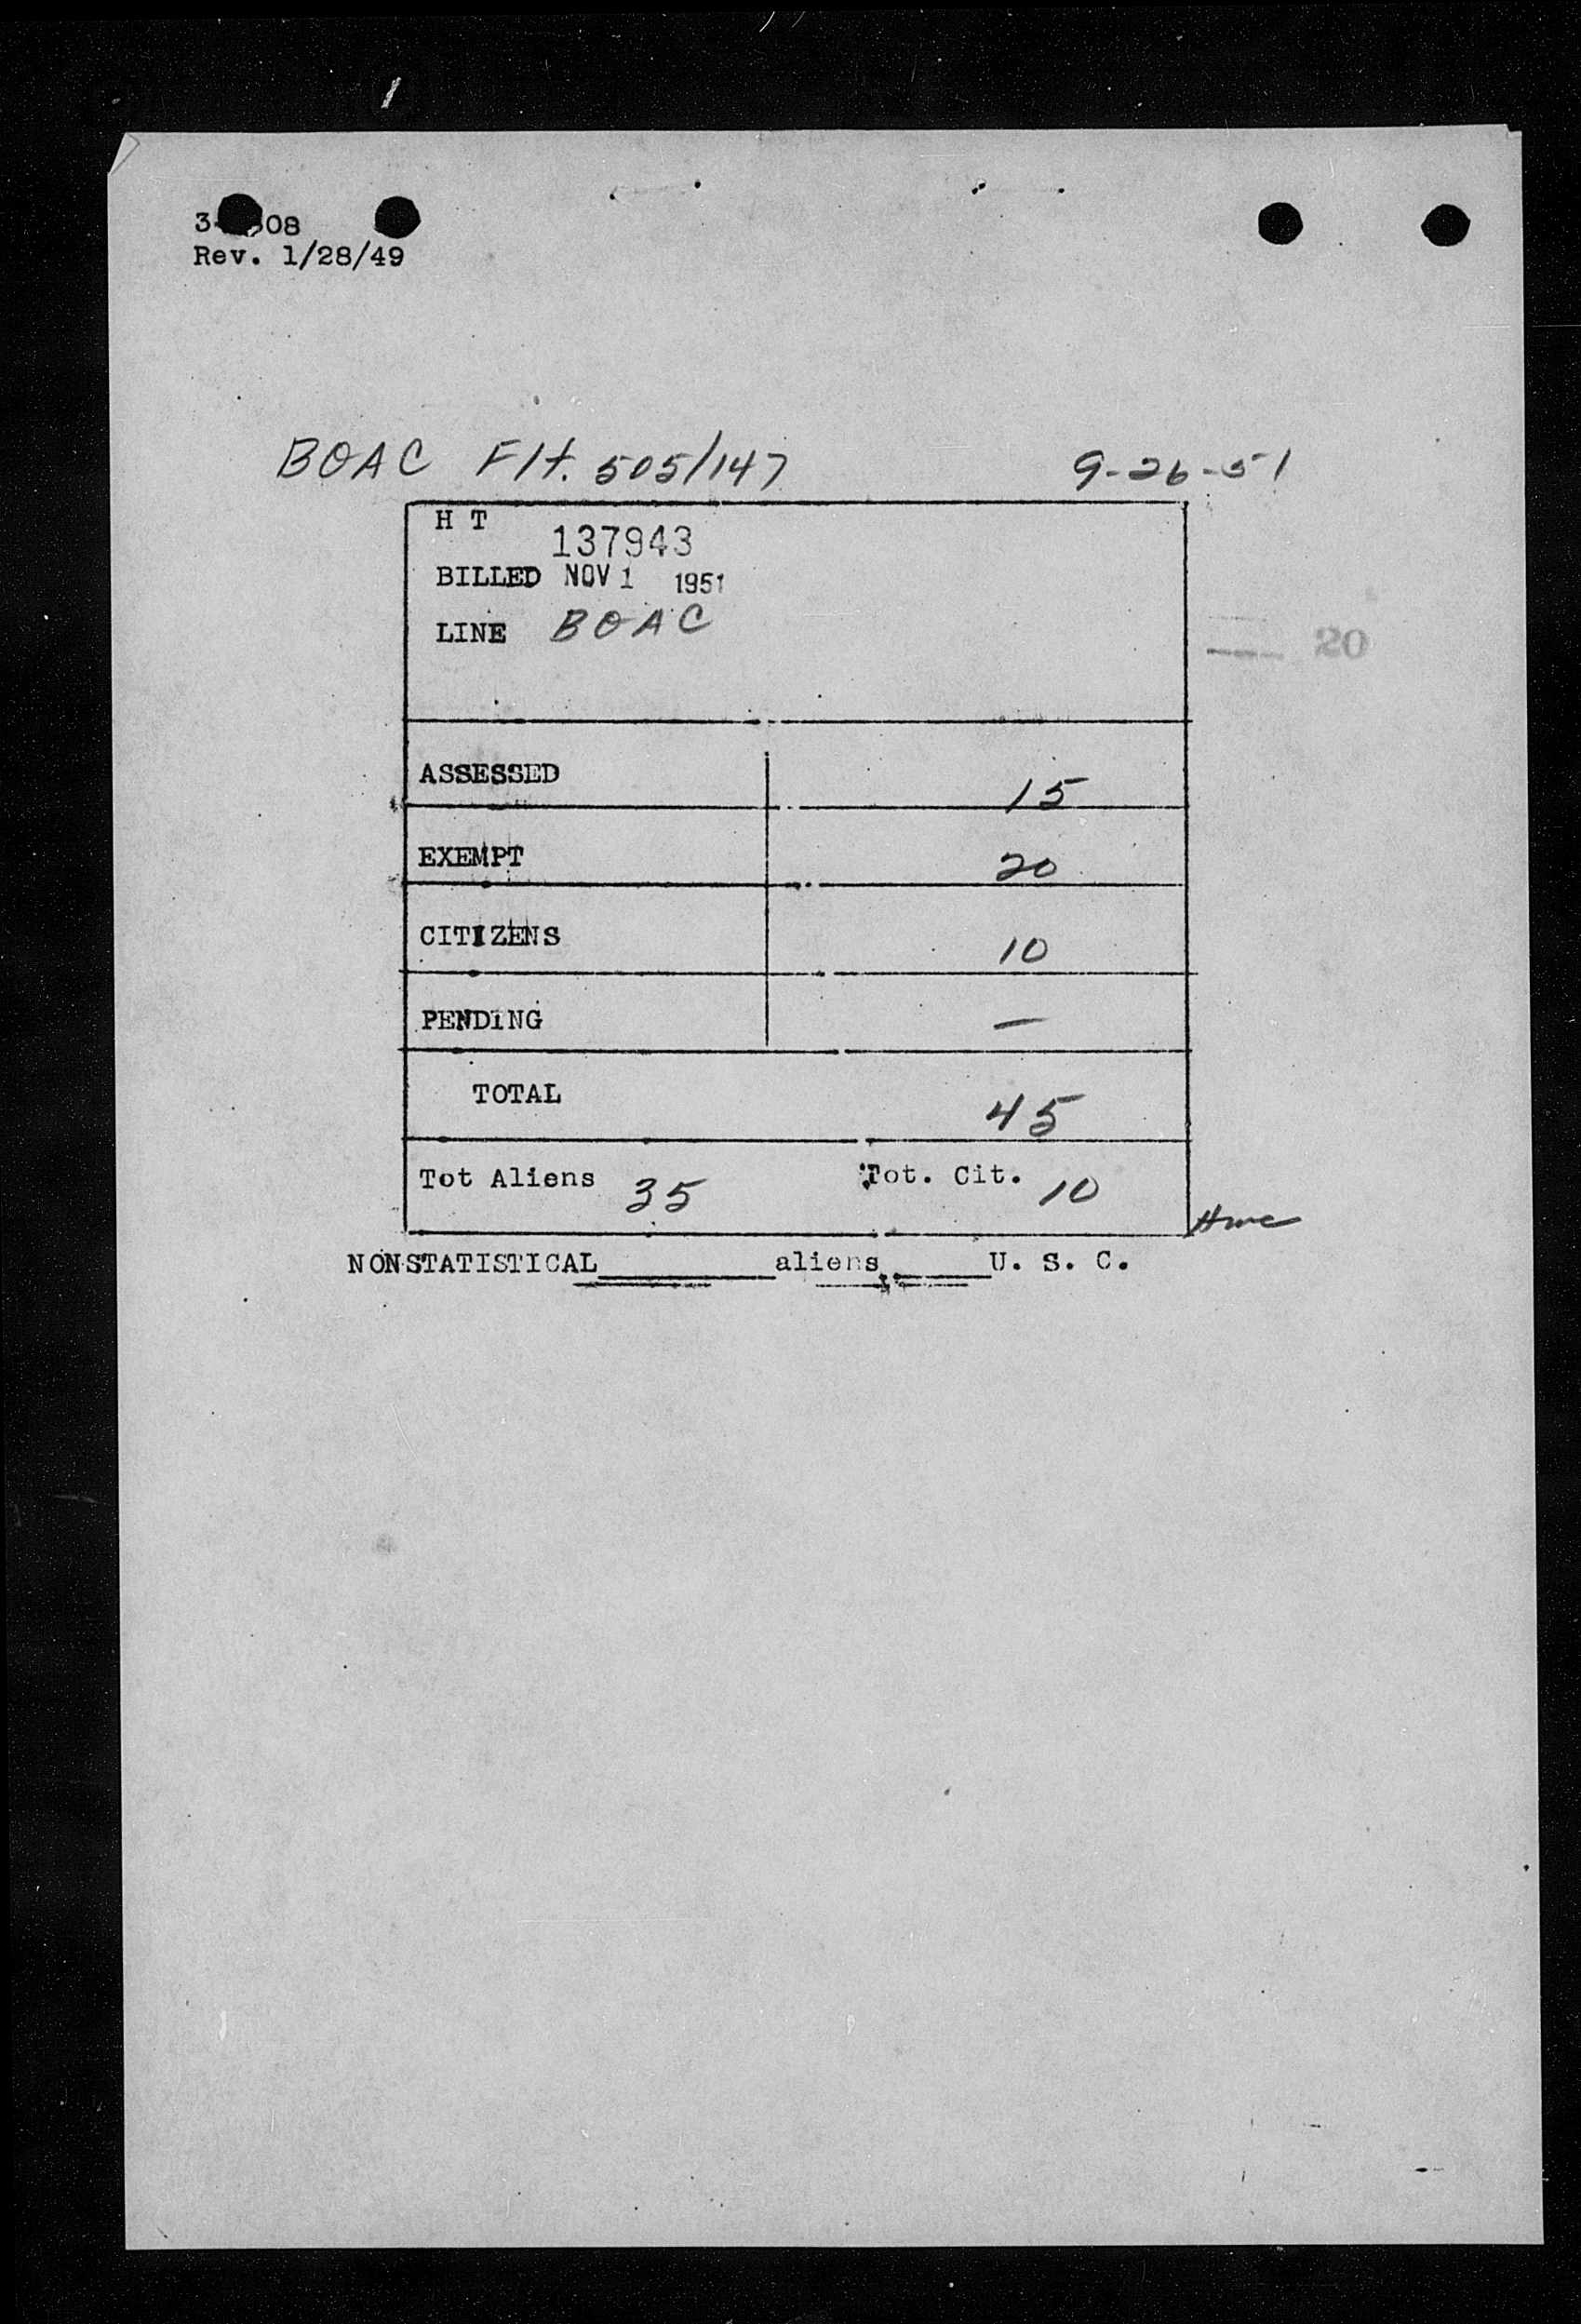 08
Rev. 1/28/49
BOAC Flt. 505/147 9-26-51
H T
137943
BILLED NOV 1 1951
LINE BOAC
20
ASSESSED 15
EXEMPT 20
CITIZENS 10
PENDING —
TOTAL 45
Tot Aliens 35 Tot. Cit. 10
NONSTATISTICAL________aliens,____U. S. C.